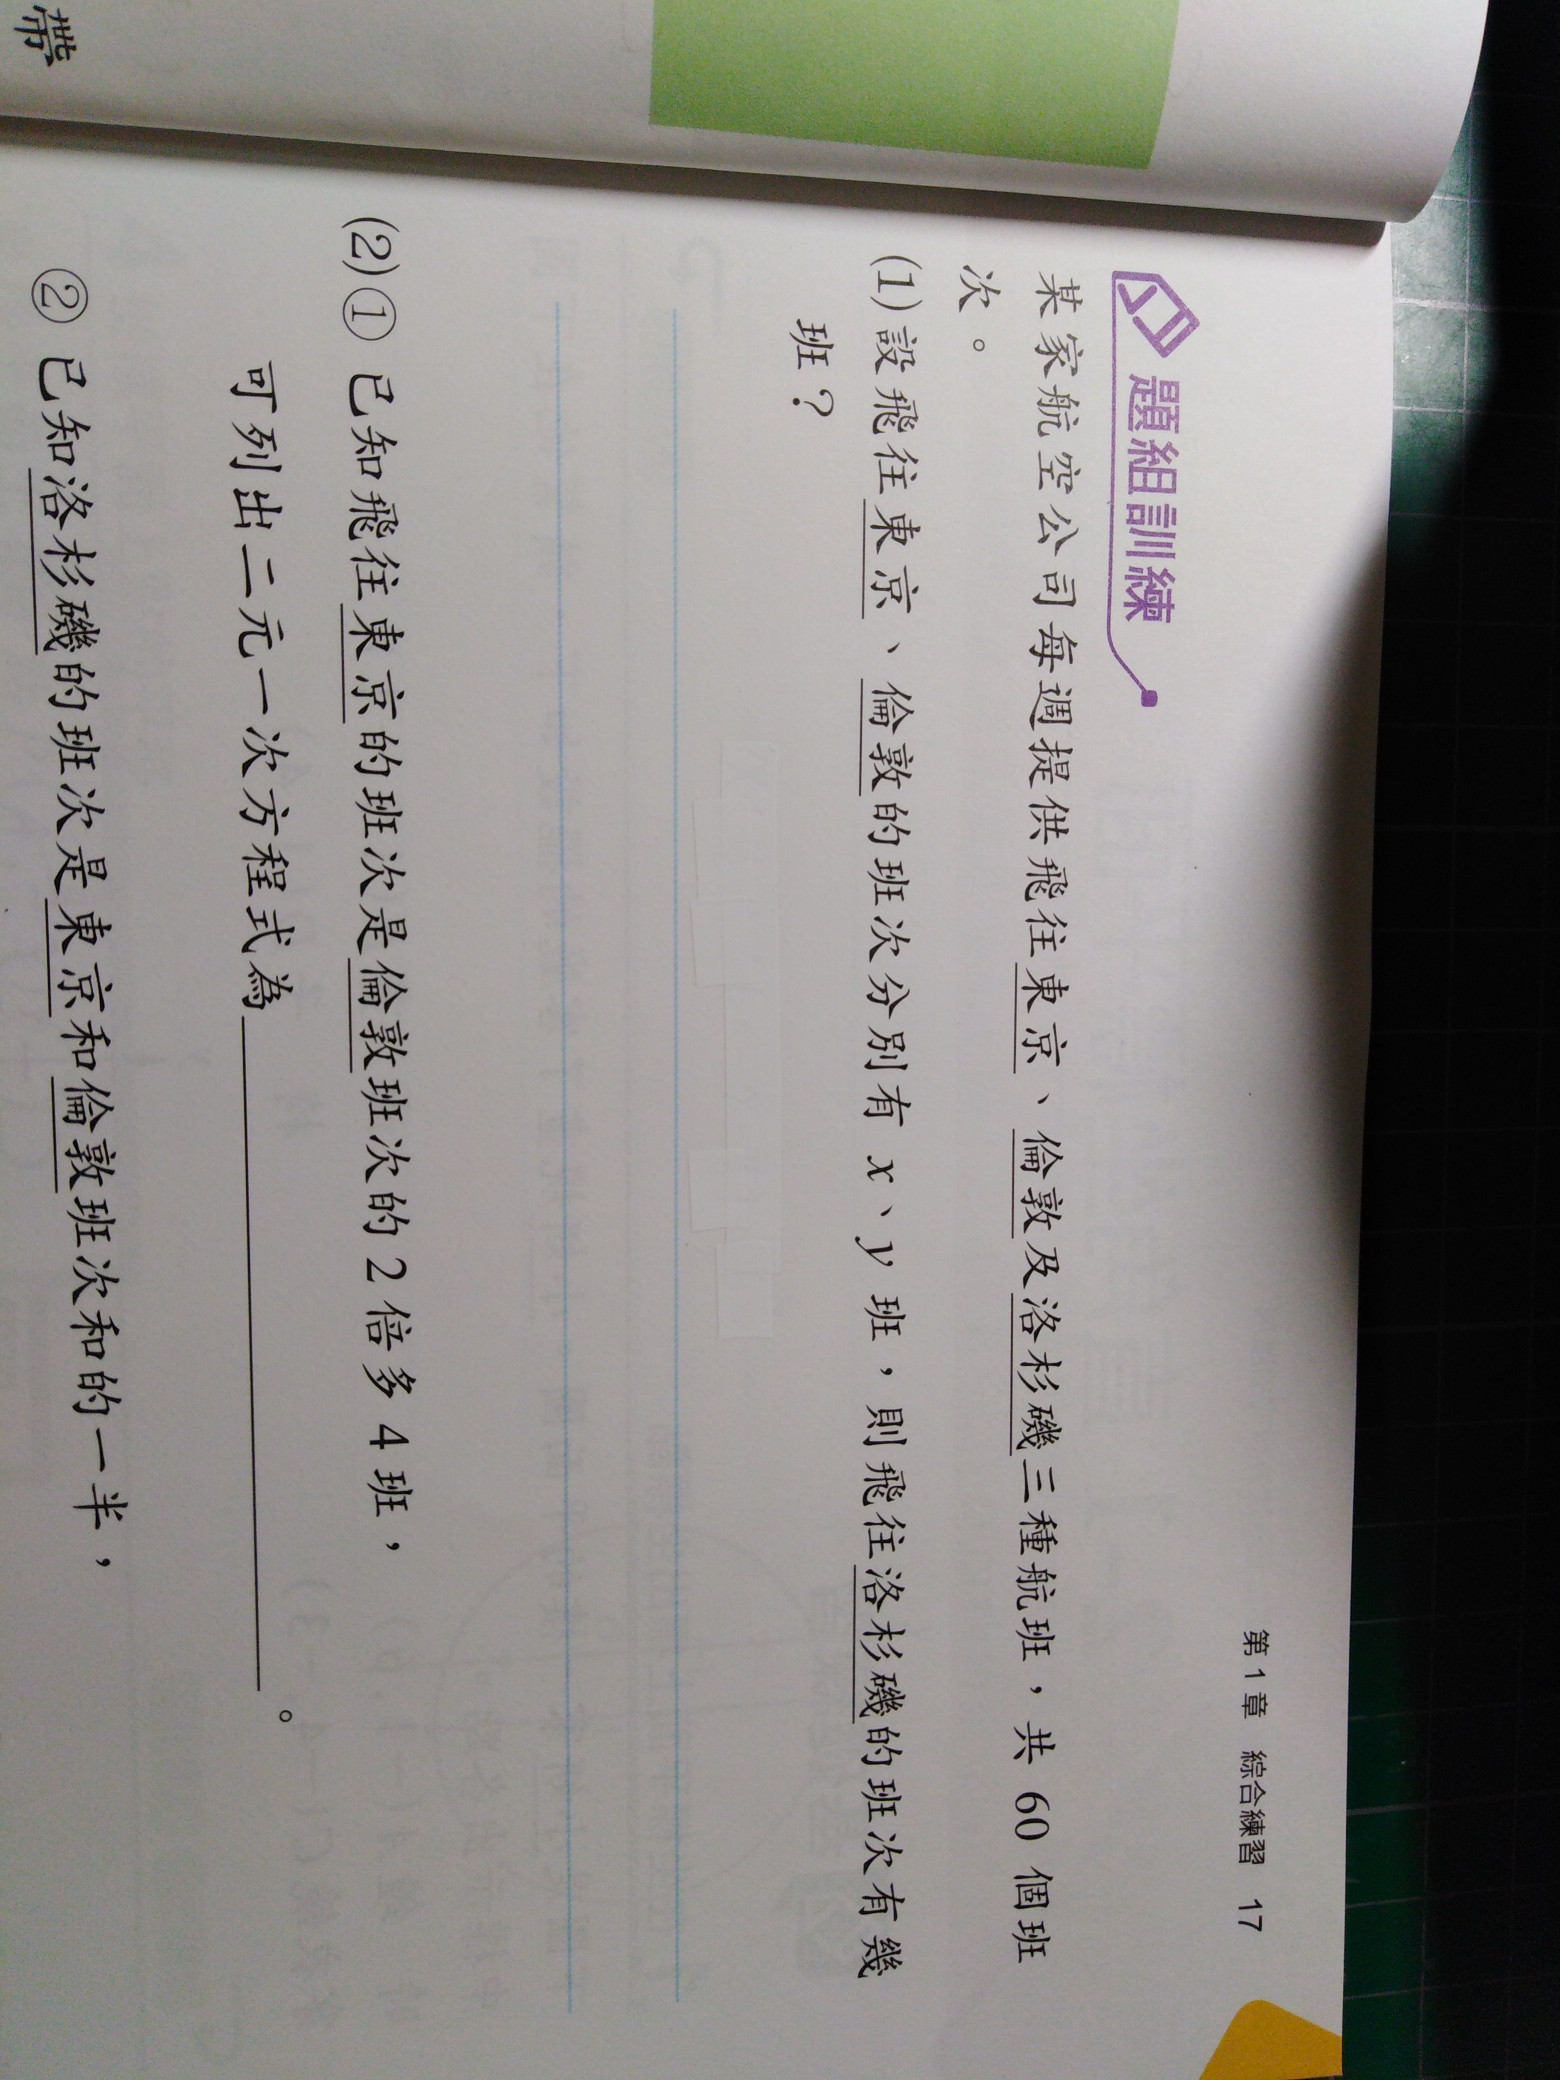 第1章 綜合練習 17
題組訓練
某家航空公司每週提供飛往東京、倫敦及洛杉磯三種航班，共 60 個班
次。
(1)設飛往東京、倫敦的班次分別有 x、y 班，則飛往洛杉磯的班次有幾
班？
(2)① 已知飛往東京的班次是倫敦班次的 2 倍多 4 班，
可列出二元一次方程式為 。
② 已知洛杉磯的班次是東京和倫敦班次和的一半，
帶